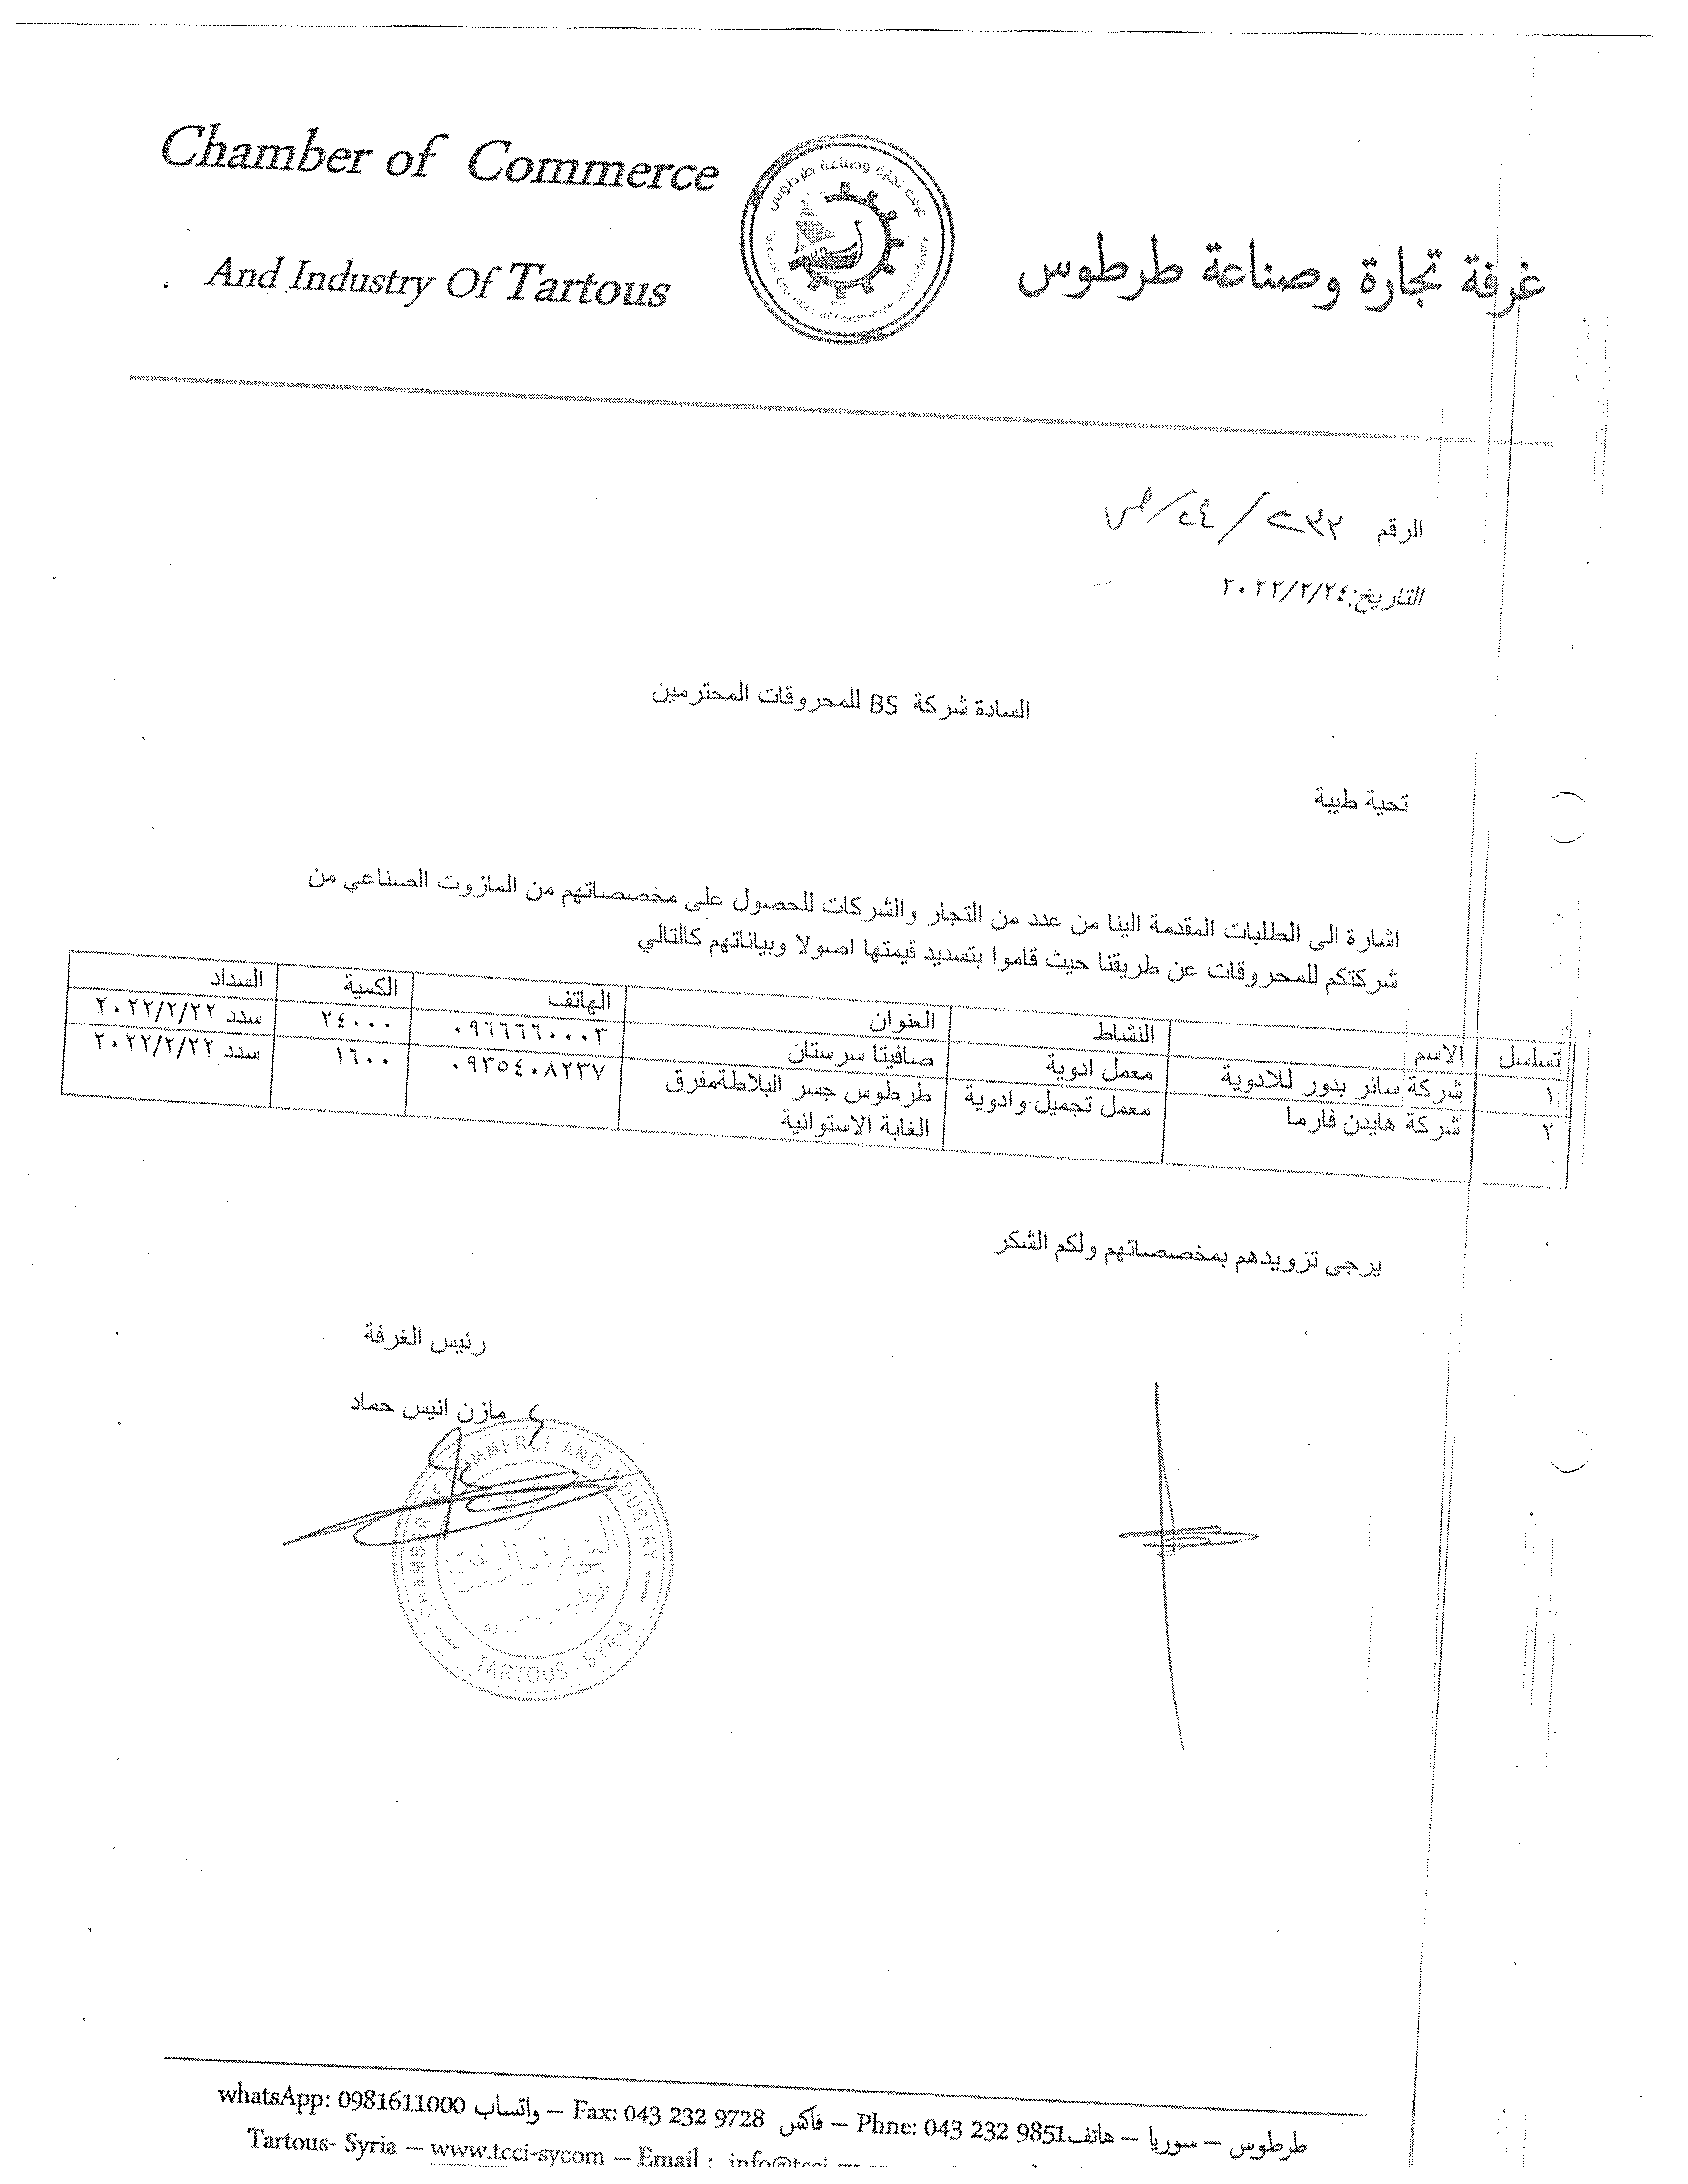 Chamber of Commerce
And Industry Of Tartous
غرفة تجارة وصناعة طرطوس
الرقم
التاريخ:٢٠٢٢/٢/٢٤
السادة شركة BS للمحروقات المحترمين
تحية طيبة
اشارة الى الطلبات المقدمة الينا من عدد من التجار والشركات للحصول على مخصصاتهم من المازوت الصناعي من
شركتكم للمحروقات عن طريقنا حيث قاموا بتسديد قيمتها اصولا وبياناتهم كالتالي
تسلسل الاسم النشاط العنوان الهاتف الكمية السداد
١ شركة سائر بدور للادوية معمل ادوية صافيتا سرستان ٠٩٦٦٦٦٠٠٠٣ ٢٤٠٠٠ سدد ٢٠٢٢/٢/٢٢
٢ شركة هايدن فارما معمل تجميل وادوية طرطوس جسر البلاطةمفرق ٠٩٣٥٤٠٨٢٣٧ ١٦٠٠ سدد ٢٠٢٢/٢/٢٢
الغابة الاستوائية
يرجى تزويدهم بمخصصاتهم ولكم الشكر
رئيس الغرفة
مازن انيس حماد
CHAMBER OF COMMERCE AND INDUSTRY
TARTOUS - SYRIA
طرطوس – سوريا – هاتف Phne: 043 232 9851 – فاكس Fax: 043 232 9728 – واتساب whatsApp: 0981611000
Tartous- Syria – www.tcci-sycom – Email : info@tcci